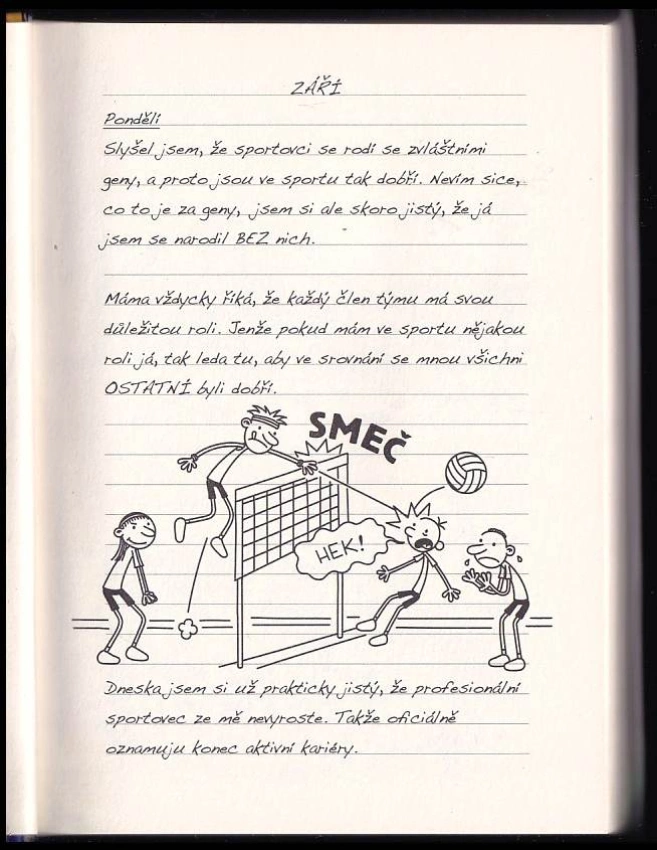 ZÁŘÍ
Pondělí
Slyšel jsem, že sportovci se rodí se zvláštními
geny, a proto jsou ve sportu tak dobří. Nevím sice,
co to je za geny, jsem si ale skoro jistý, že já
jsem se narodil BEZ nich.
Máma vždycky říká, že každý člen týmu má svou
důležitou roli. Jenže pokud mám ve sportu nějakou
roli já, tak leda tu, aby ve srovnání se mnou všichni
OSTATNÍ byli dobří.
SMEČ
HEK!
Dneska jsem si už prakticky jistý, že profesionální
sportovec ze mě nevyroste. Takže oficiálně
oznamuju konec aktivní kariéry.